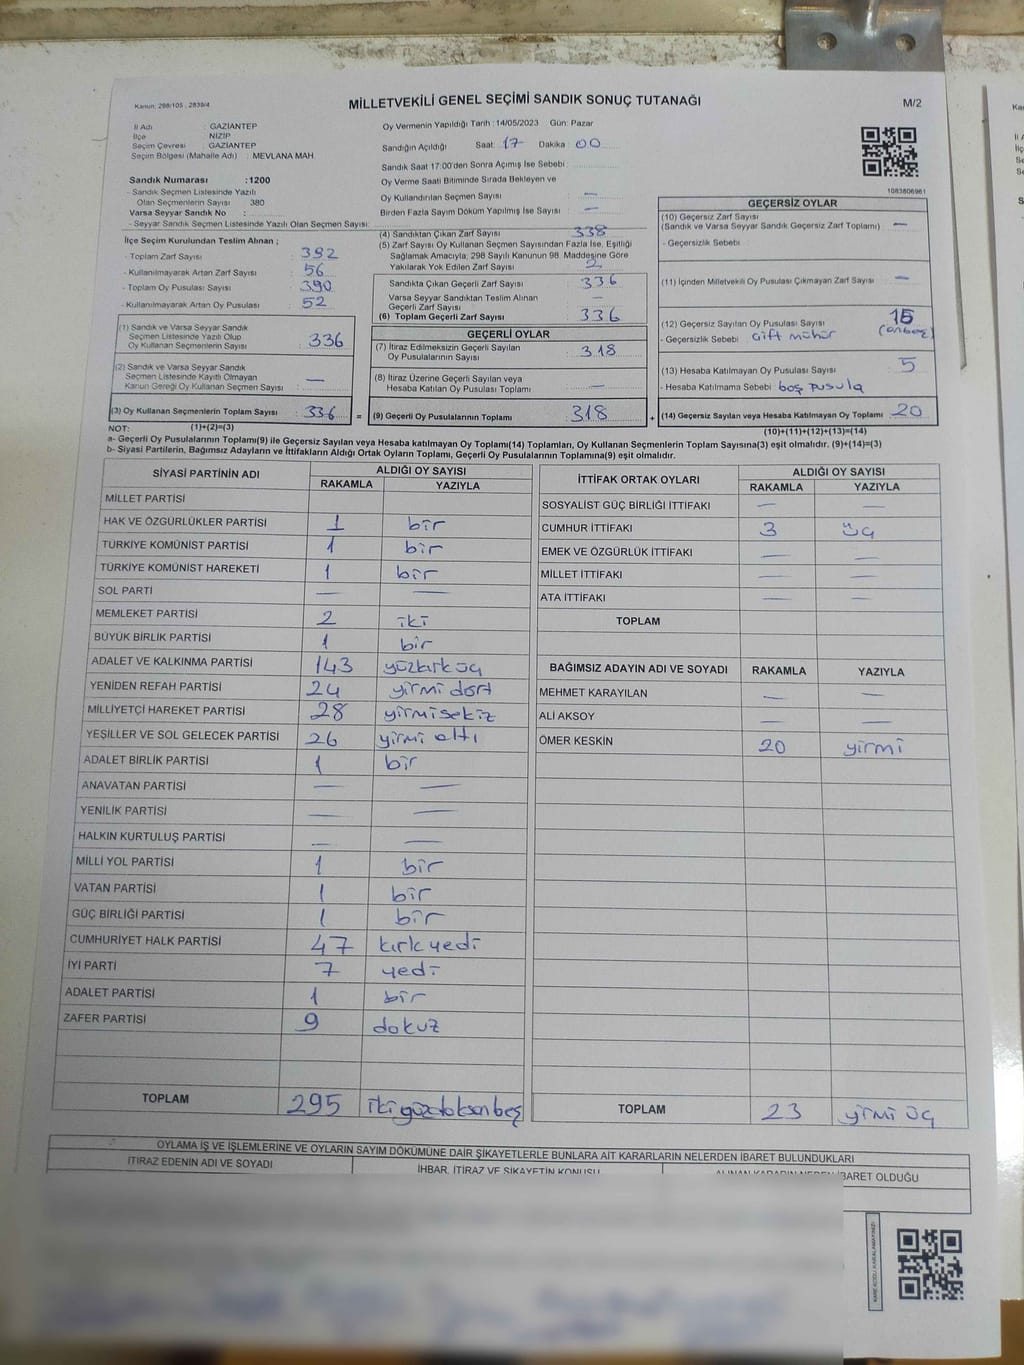 Kanun; 298/105 , 2839/4
MİLLETVEKİLİ GENEL SEÇİMİ SANDIK SONUÇ TUTANAĞI
M/2
İl Adı : GAZİANTEP
İlçe : NİZİP
Seçim Çevresi : GAZİANTEP
Seçim Bölgesi (Mahalle Adı) : MEVLANA MAH
Sandık Numarası :1200
- Sandık Seçmen Listesinde Yazılı
Olan Seçmenlerin Sayısı 380
Varsa Seyyar Sandık No :
- Seyyar Sandık Seçmen Listesinde Yazılı Olan Seçmen Sayısı:
İlçe Seçim Kurulundan Teslim Alınan ;
- Toplam Zarf Sayısı : 392
- Kullanılmayarak Artan Zarf Sayısı : 56
- Toplam Oy Pusulası Sayısı : 390
- Kullanılmayarak Artan Oy Pusulası : 52
(1) Sandık ve Varsa Seyyar Sandık
Seçmen Listesinde Yazılı Olup
Oy Kullanan Seçmenlerin Sayısı : 336
(2) Sandık ve Varsa Seyyar Sandık
Seçmen Listesinde Kayıtlı Olmayan
Kanun Gereği Oy Kullanan Seçmen Sayısı : —
(3) Oy Kullanan Seçmenlerin Toplam Sayısı : 336
(1)+(2)=(3)
Oy Vermenin Yapıldığı Tarih :14/05/2023 Gün: Pazar
Sandığın Açıldığı Saat :17 Dakika :00
Sandık Saat 17:00'den Sonra Açımış İse Sebebi :
Oy Verme Saati Bitiminde Sırada Bekleyen ve
Oy Kullandırılan Seçmen Sayısı : —
Birden Fazla Sayım Döküm Yapılmış İse Sayısı : —
(4) Sandıktan Çıkan Zarf Sayısı : 338
(5) Zarf Sayısı Oy Kullanan Seçmen Sayısından Fazla İse, Eşitliği
Sağlamak Amacıyla; 298 Sayılı Kanunun 98. Maddesine Göre
Yakılarak Yok Edilen Zarf Sayısı : 2
Sandıkta Çıkan Geçerli Zarf Sayısı : 336
Varsa Seyyar Sandıktan Teslim Alınan
Geçerli Zarf Sayısı : —
(6) Toplam Geçerli Zarf Sayısı : 336
GEÇERLİ OYLAR
(7) İtiraz Edilmeksizin Geçerli Sayılan
Oy Pusulalarının Sayısı : 318
(8) İtiraz Üzerine Geçerli Sayılan veya
Hesaba Katılan Oy Pusulası Toplamı : —
= (9) Geçerli Oy Pusulalarının Toplamı : 318
1083806961
GEÇERSİZ OYLAR
(10) Geçersiz Zarf Sayısı
(Sandık ve Varsa Seyyar Sandık Geçersiz Zarf Toplamı) : —
- Geçersizlik Sebebi :
(11) İçinden Milletvekili Oy Pusulası Çıkmayan Zarf Sayısı : —
(12) Geçersiz Sayılan Oy Pusulası Sayısı : 15
- Geçersizlik Sebebi : Çift mühür (onbeş)
(13) Hesaba Katılmayan Oy Pusulası Sayısı : 5
- Hesaba Katılmama Sebebi : boş pusula
+ (14) Geçersiz Sayılan veya Hesaba Katılmayan Oy Toplamı : 20
(10)+(11)+(12)+(13)=(14)
NOT:
a- Geçerli Oy Pusulalarının Toplamı(9) ile Geçersiz Sayılan veya Hesaba katılmayan Oy Toplamı(14) Toplamları, Oy Kullanan Seçmenlerin Toplam Sayısına(3) eşit olmalıdır. (9)+(14)=(3)
b- Siyasi Partilerin, Bağımsız Adayların ve İttifakların Aldığı Ortak Oyların Toplamı, Geçerli Oy Pusulalarının Toplamına(9) eşit olmalıdır.
SİYASİ PARTİNİN ADI ALDIĞI OY SAYISI
RAKAMLA YAZIYLA
MİLLET PARTİSİ
HAK VE ÖZGÜRLÜKLER PARTİSİ 1 bir
TÜRKİYE KOMÜNİST PARTİSİ 1 bir
TÜRKİYE KOMÜNİST HAREKETİ 1 bir
SOL PARTİ — —
MEMLEKET PARTİSİ 2 iki
BÜYÜK BİRLİK PARTİSİ 1 bir
ADALET VE KALKINMA PARTİSİ 143 yüzkırküç
YENİDEN REFAH PARTİSİ 24 yirmi dört
MİLLİYETÇİ HAREKET PARTİSİ 28 yirmisekiz
YEŞİLLER VE SOL GELECEK PARTİSİ 26 yirmi altı
ADALET BİRLİK PARTİSİ 1 bir
ANAVATAN PARTİSİ — —
YENİLİK PARTİSİ — —
HALKIN KURTULUŞ PARTİSİ — —
MİLLİ YOL PARTİSİ 1 bir
VATAN PARTİSİ 1 bir
GÜÇ BİRLİĞİ PARTİSİ 1 bir
CUMHURİYET HALK PARTİSİ 47 kırkyedi
İYİ PARTİ 7 yedi
ADALET PARTİSİ 1 bir
ZAFER PARTİSİ 9 dokuz
TOPLAM 295 ikiyüzdoksanbeş
İTTİFAK ORTAK OYLARI ALDIĞI OY SAYISI
RAKAMLA YAZIYLA
SOSYALİST GÜÇ BİRLİĞİ İTTİFAKI — —
CUMHUR İTTİFAKI 3 üç
EMEK VE ÖZGÜRLÜK İTTİFAKI — —
MİLLET İTTİFAKI — —
ATA İTTİFAKI — —
TOPLAM
BAĞIMSIZ ADAYIN ADI VE SOYADI RAKAMLA YAZIYLA
MEHMET KARAYILAN — —
ALİ AKSOY — —
ÖMER KESKİN 20 yirmi
TOPLAM 23 yirmi üç
OYLAMA İŞ VE İŞLEMLERİNE VE OYLARIN SAYIM DÖKÜMÜNE DAİR ŞİKAYETLERLE BUNLARA AİT KARARLARIN NELERDEN İBARET BULUNDUKLARI
İTİRAZ EDENİN ADI VE SOYADI İHBAR, İTİRAZ VE ŞİKAYETİN KONUSU ALINAN KARARIN NEDEN İBARET OLDUĞU
KAREKODU KARALAMAYINIZ!